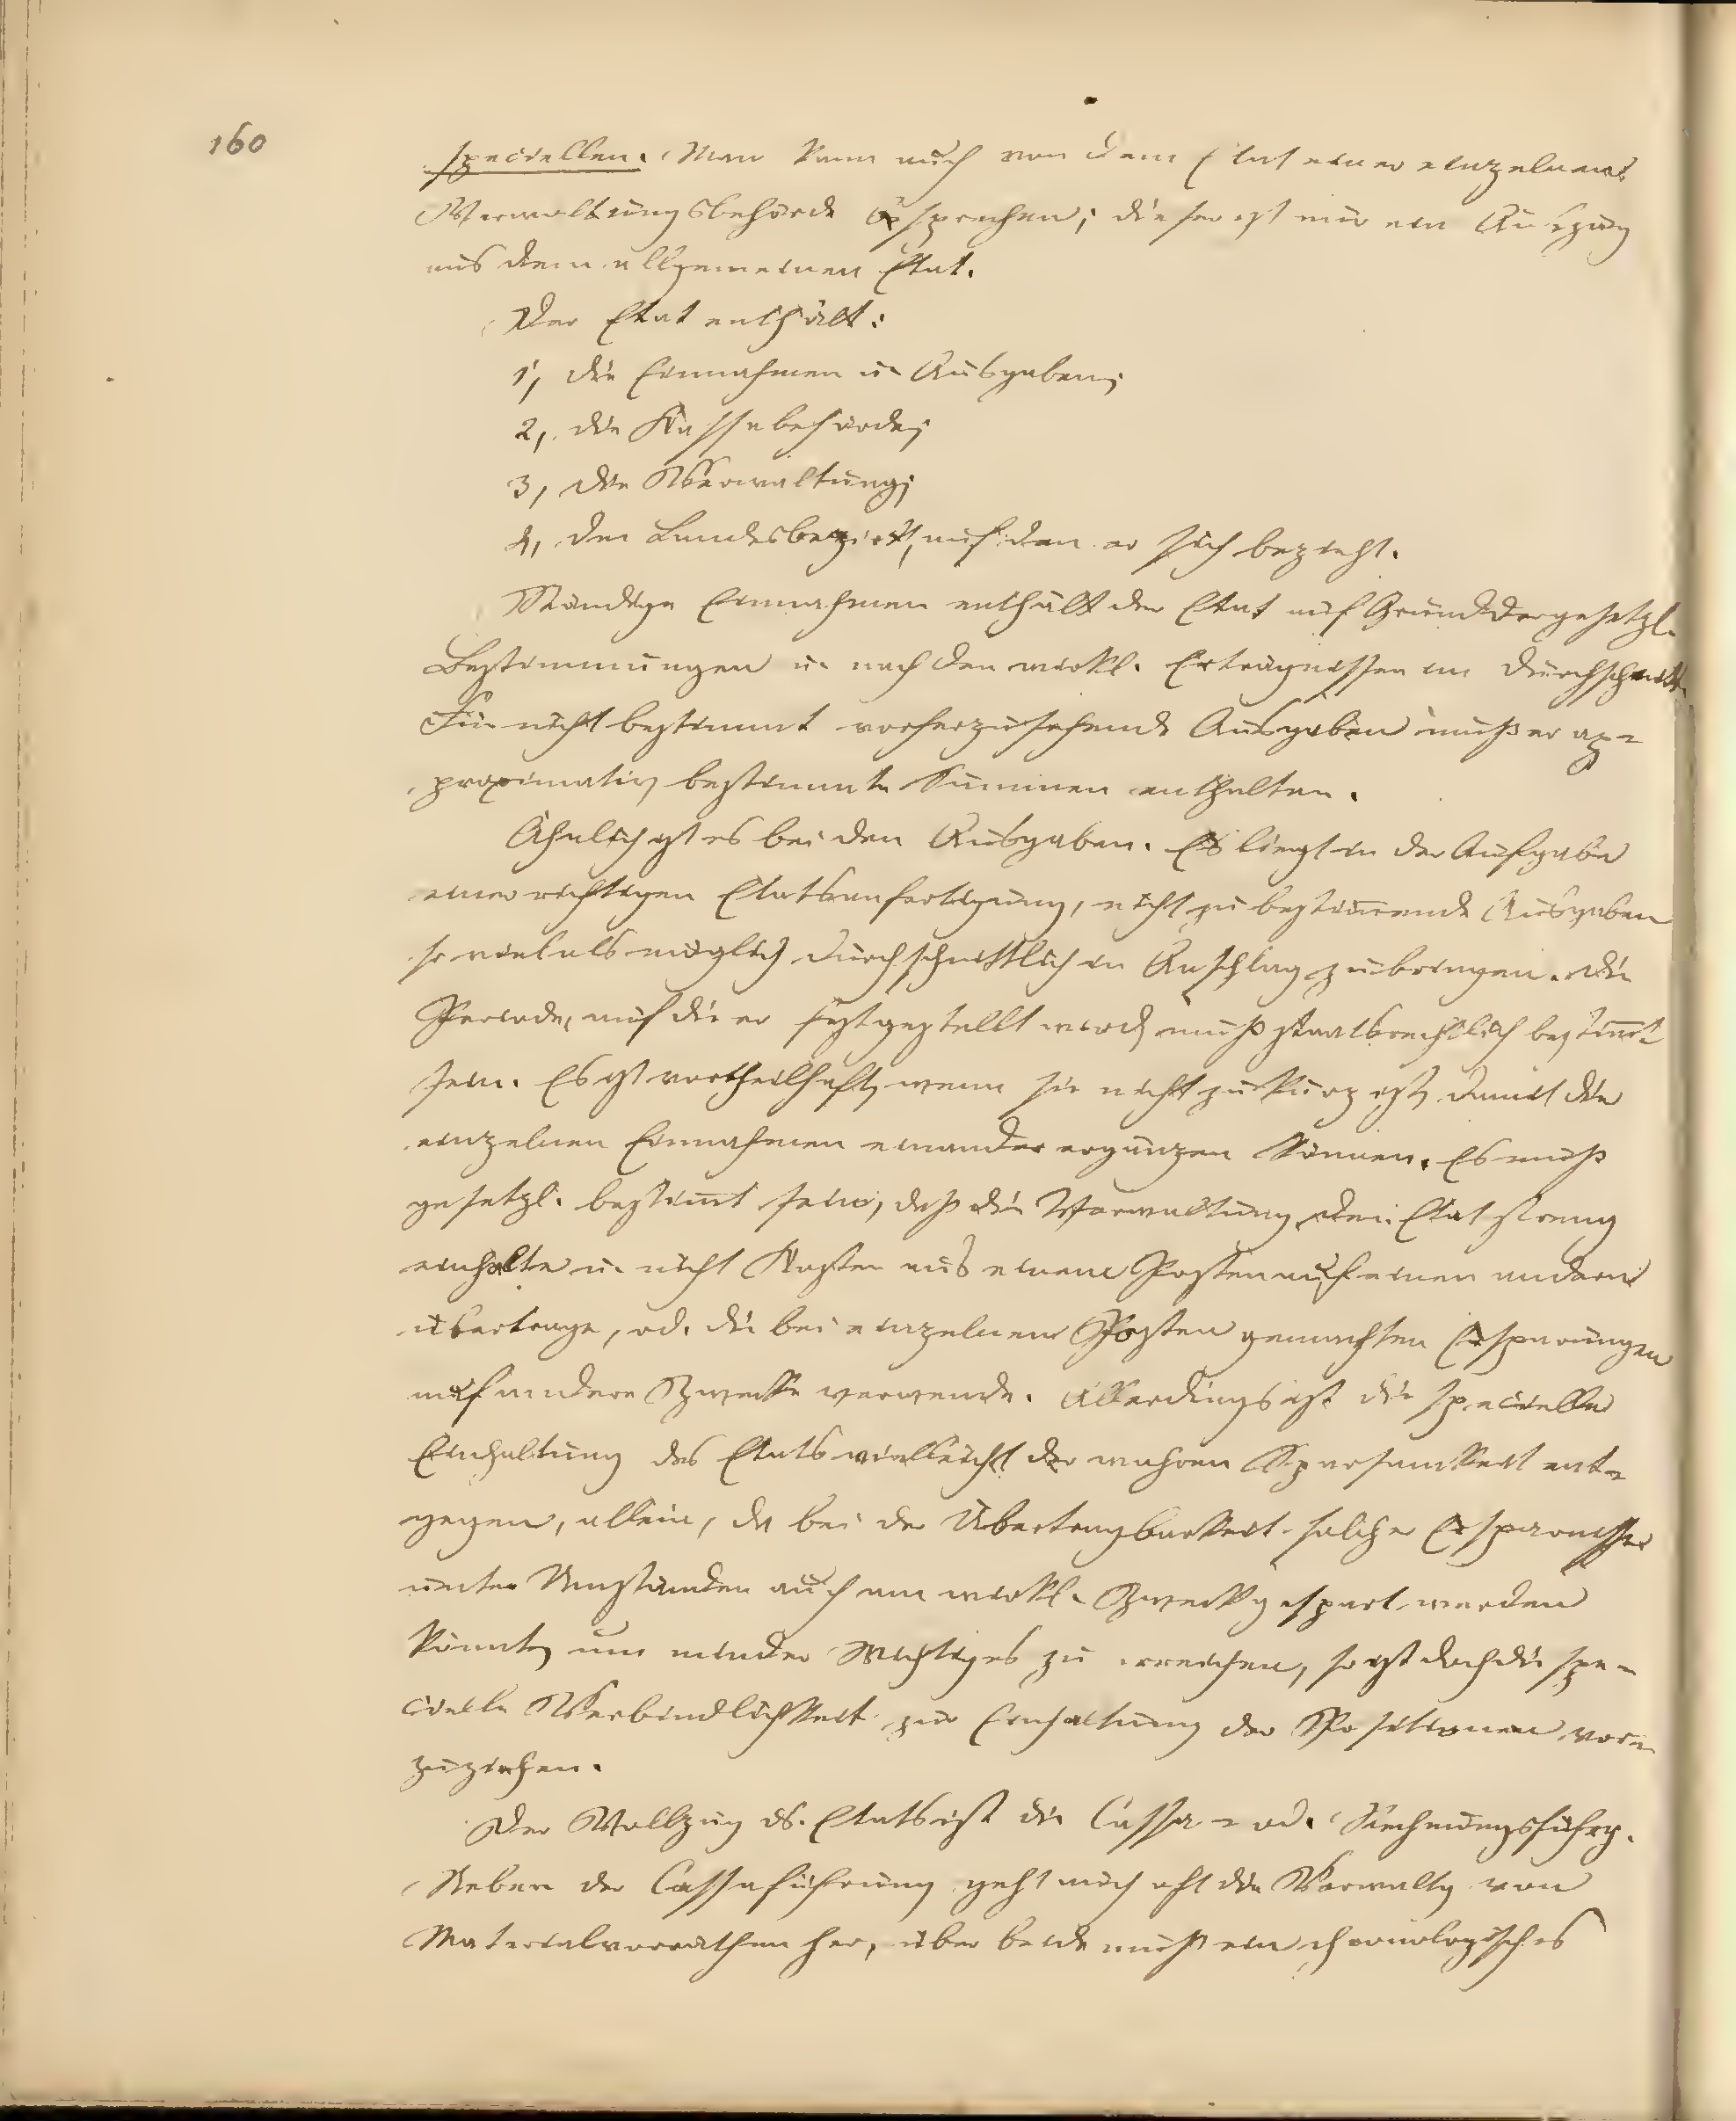 160
speciellen. Man kann auch von dem Etat einer einzelnen
Verwaltungsbehörde sprechen; dieser ist nur ein Auszug
aus dem allgemeinen Etat.
Der Etat enthält:
1, die Einnahmen u. Ausgaben;
2, die Kassebehörde;
3, die Verwaltung;
4, den Landesbezirk, auf den er sich bezieht.
Ständige Einnahmen enthält der Etat auf Grund der gesetzl.
Bestimmungen u. nach den wirkl. Erträgnissen im Durchschnitt.
Für nicht bestimmt vorherzusehende Ausgaben muß er ap=
proximativ bestimmte Summen enthalten.
Ähnlich ist es bei den Ausgaben. Es liegt in der Aufgabe
einer richtigen Etatsanfertigung, nicht zu bestimmende Ausgaben
so viel als möglich durchschnittlich in Anschlag zu bringen. Die
Periode, auf die er festgestellt wird, muß staatsrechtlich bestimt
sein. Es ist vortheilhaft, wenn sie nicht zu kurz ist, damit die
einzelnen Einnahmen einander ergänzen können. Es muß
gesetzl. bestimt sein, daß die Verwaltung den Etat streng
einhalte u. nicht Kosten aus einem Posten auf einen andern
übertrage, od. die bei einzelnen Posten gemachten Ersparungen
auf andere Zwecke verwende. Allerdings ist die specielle
Einhaltung des Etats vielleicht der wahren Sparsamkeit ent=
gegen, allein, da bei der Übertragbarkeit solcher Ersparnisse
unter Umständen auch am wirkl. Zweck gespart werden
könnte, um minder Wichtiges zu erreichen, so ist doch die spe=
cielle Verbindlichkeit zur Einhaltung der Positionen vor=
zuziehen.
Der Vollzug ds. Etats ist die Cassa= od. Rechnungsführg.
Neben der Cassaführung geht auch oft die Verwaltg von
Materialvorräthen her, über beide muß ein chronologisches